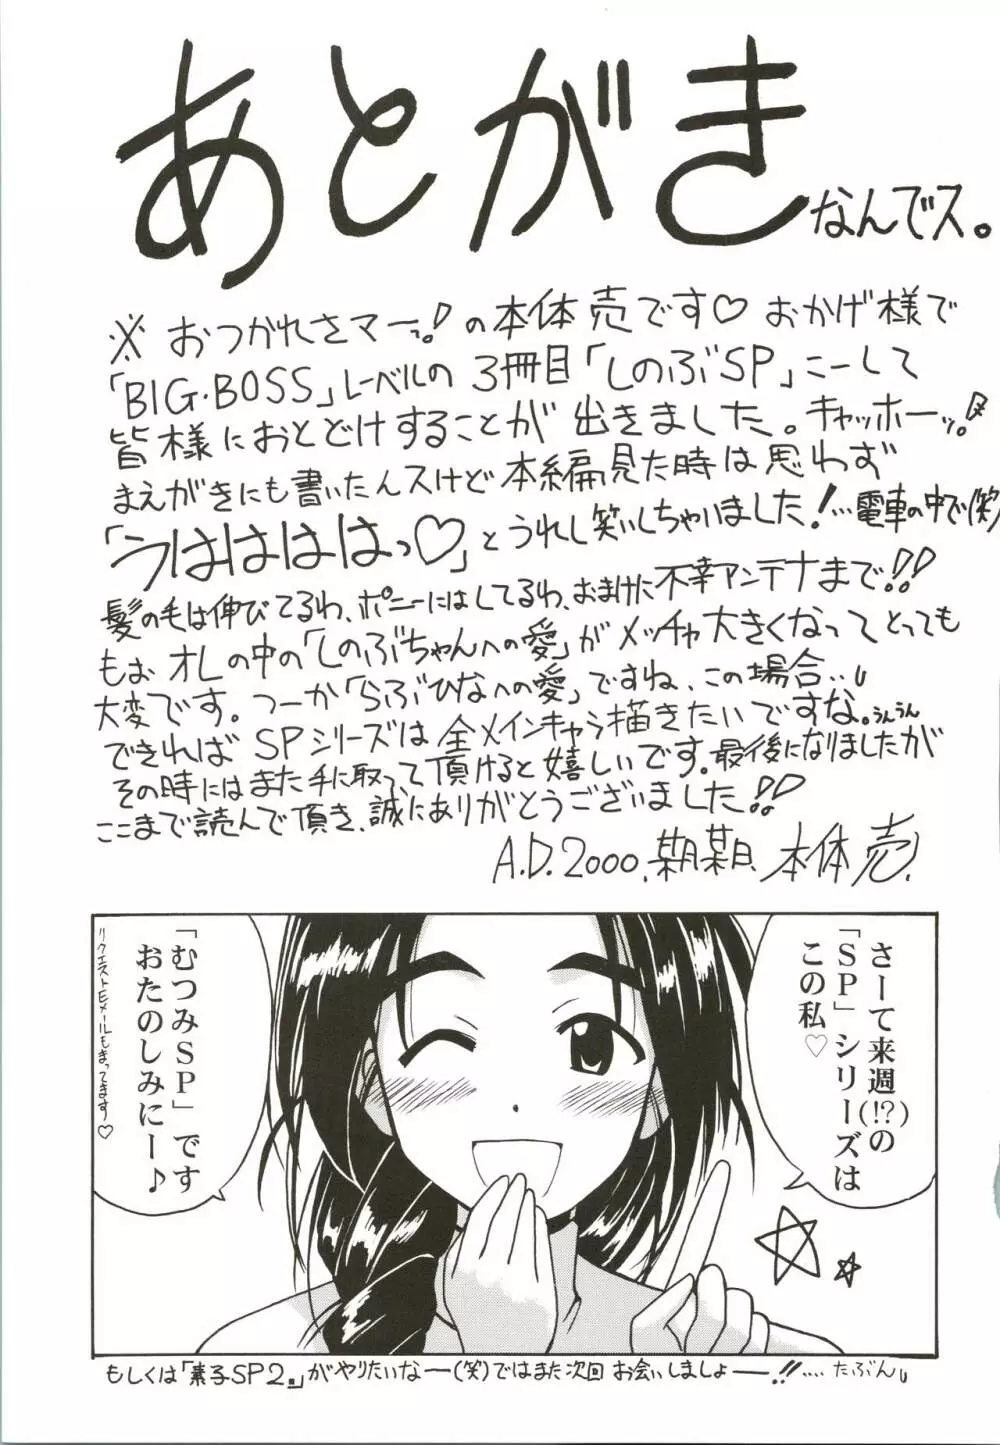 あとがき なんでス。
※おつかれさマーっ!の本体売です♡おかげ様で
「BIG・BOSS」レーベルの3冊目「しのぶSP」こーして
皆様におとどけすることが出きました。キャッホーッ!
まえがきにも書いたんスけど本編見た時は思わず
「うはははっ♡」とうれし笑いしちゃいました!…電車の中で(笑)
髪の毛は伸びてるわ、ポニーにはしてるわ、おまけに不幸アンテナまで!!
もぉオレの中の「しのぶちゃんへの愛」がメッチャ大きくなってとっても
大変です。つーか「らぶひなへの愛」ですね、この場合…。
できればSPシリーズは全メインキャラ描きたいですな。うんうん
その時にはまた手に取って頂けると嬉しいです。最後になりましたが
ここまで読んで頂き、誠にありがとうございました!!
A.D.2000.某月某日.本体売.
さーて来週(!?)の
「SP」シリーズは
この私♡
「むつみSP」です
おたのしみにー♪
リクエストEメールもまってます♡
もしくは「素子SP2」がやりたいなー(笑)ではまた次回お会いしましょー!!……たぶん。